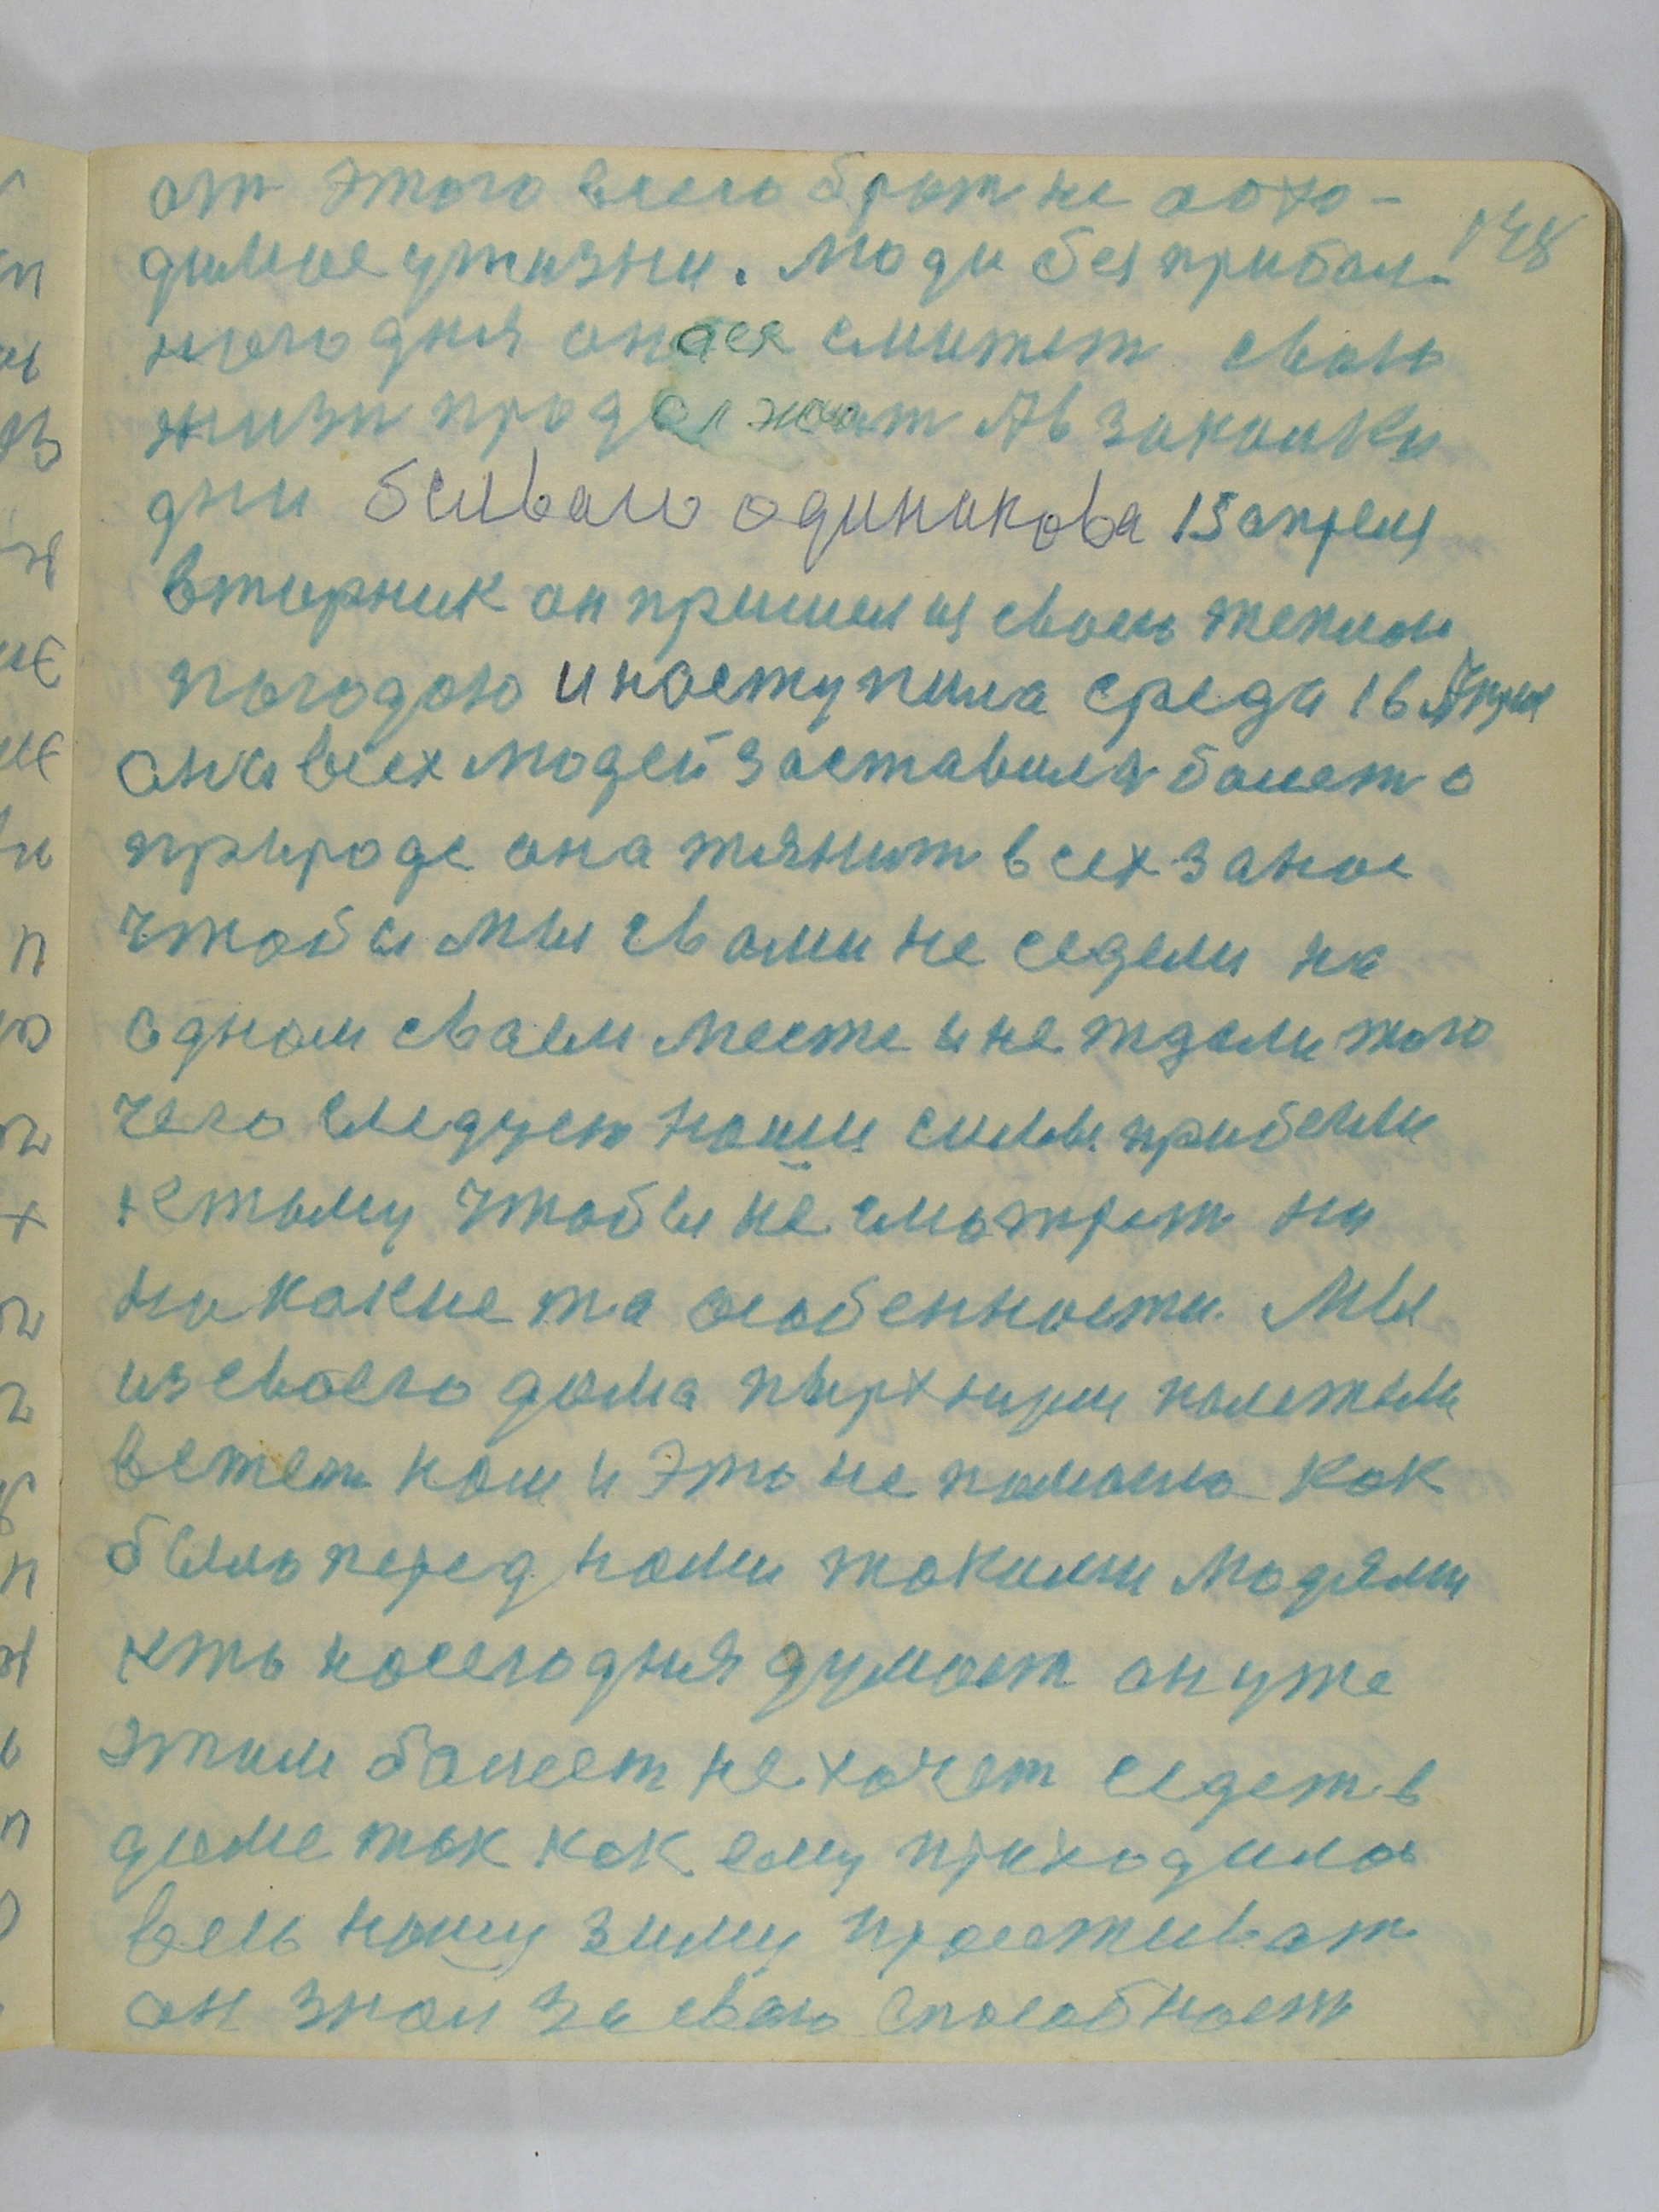 от этого всего брат не аохо-
димое ужизни. Люди без прибал-
ного дня они все смитет свою
жизн продолжат Ав законки
дни бывало одинакова 15 апреля
вторник он пришел из своею теплои
погодою и наступила среда 16 Апреля
она всех людей заставила болет о
природе она тянит всех заное
чтобы мы свами не седели на
одном своем месте и не ждали того
чего следует наши силы прибегли
ктому чтобы не смотрет ни
на какие та особенности. Мы
из своего дома полетели
ветет наш и это не помогло как
было перед нами такими людями
кто насегодня думает он уже
этим болеет не хочет седет в
доме так как ему приходилос
всю нашу зиму простиват
он знал за свою способност
148